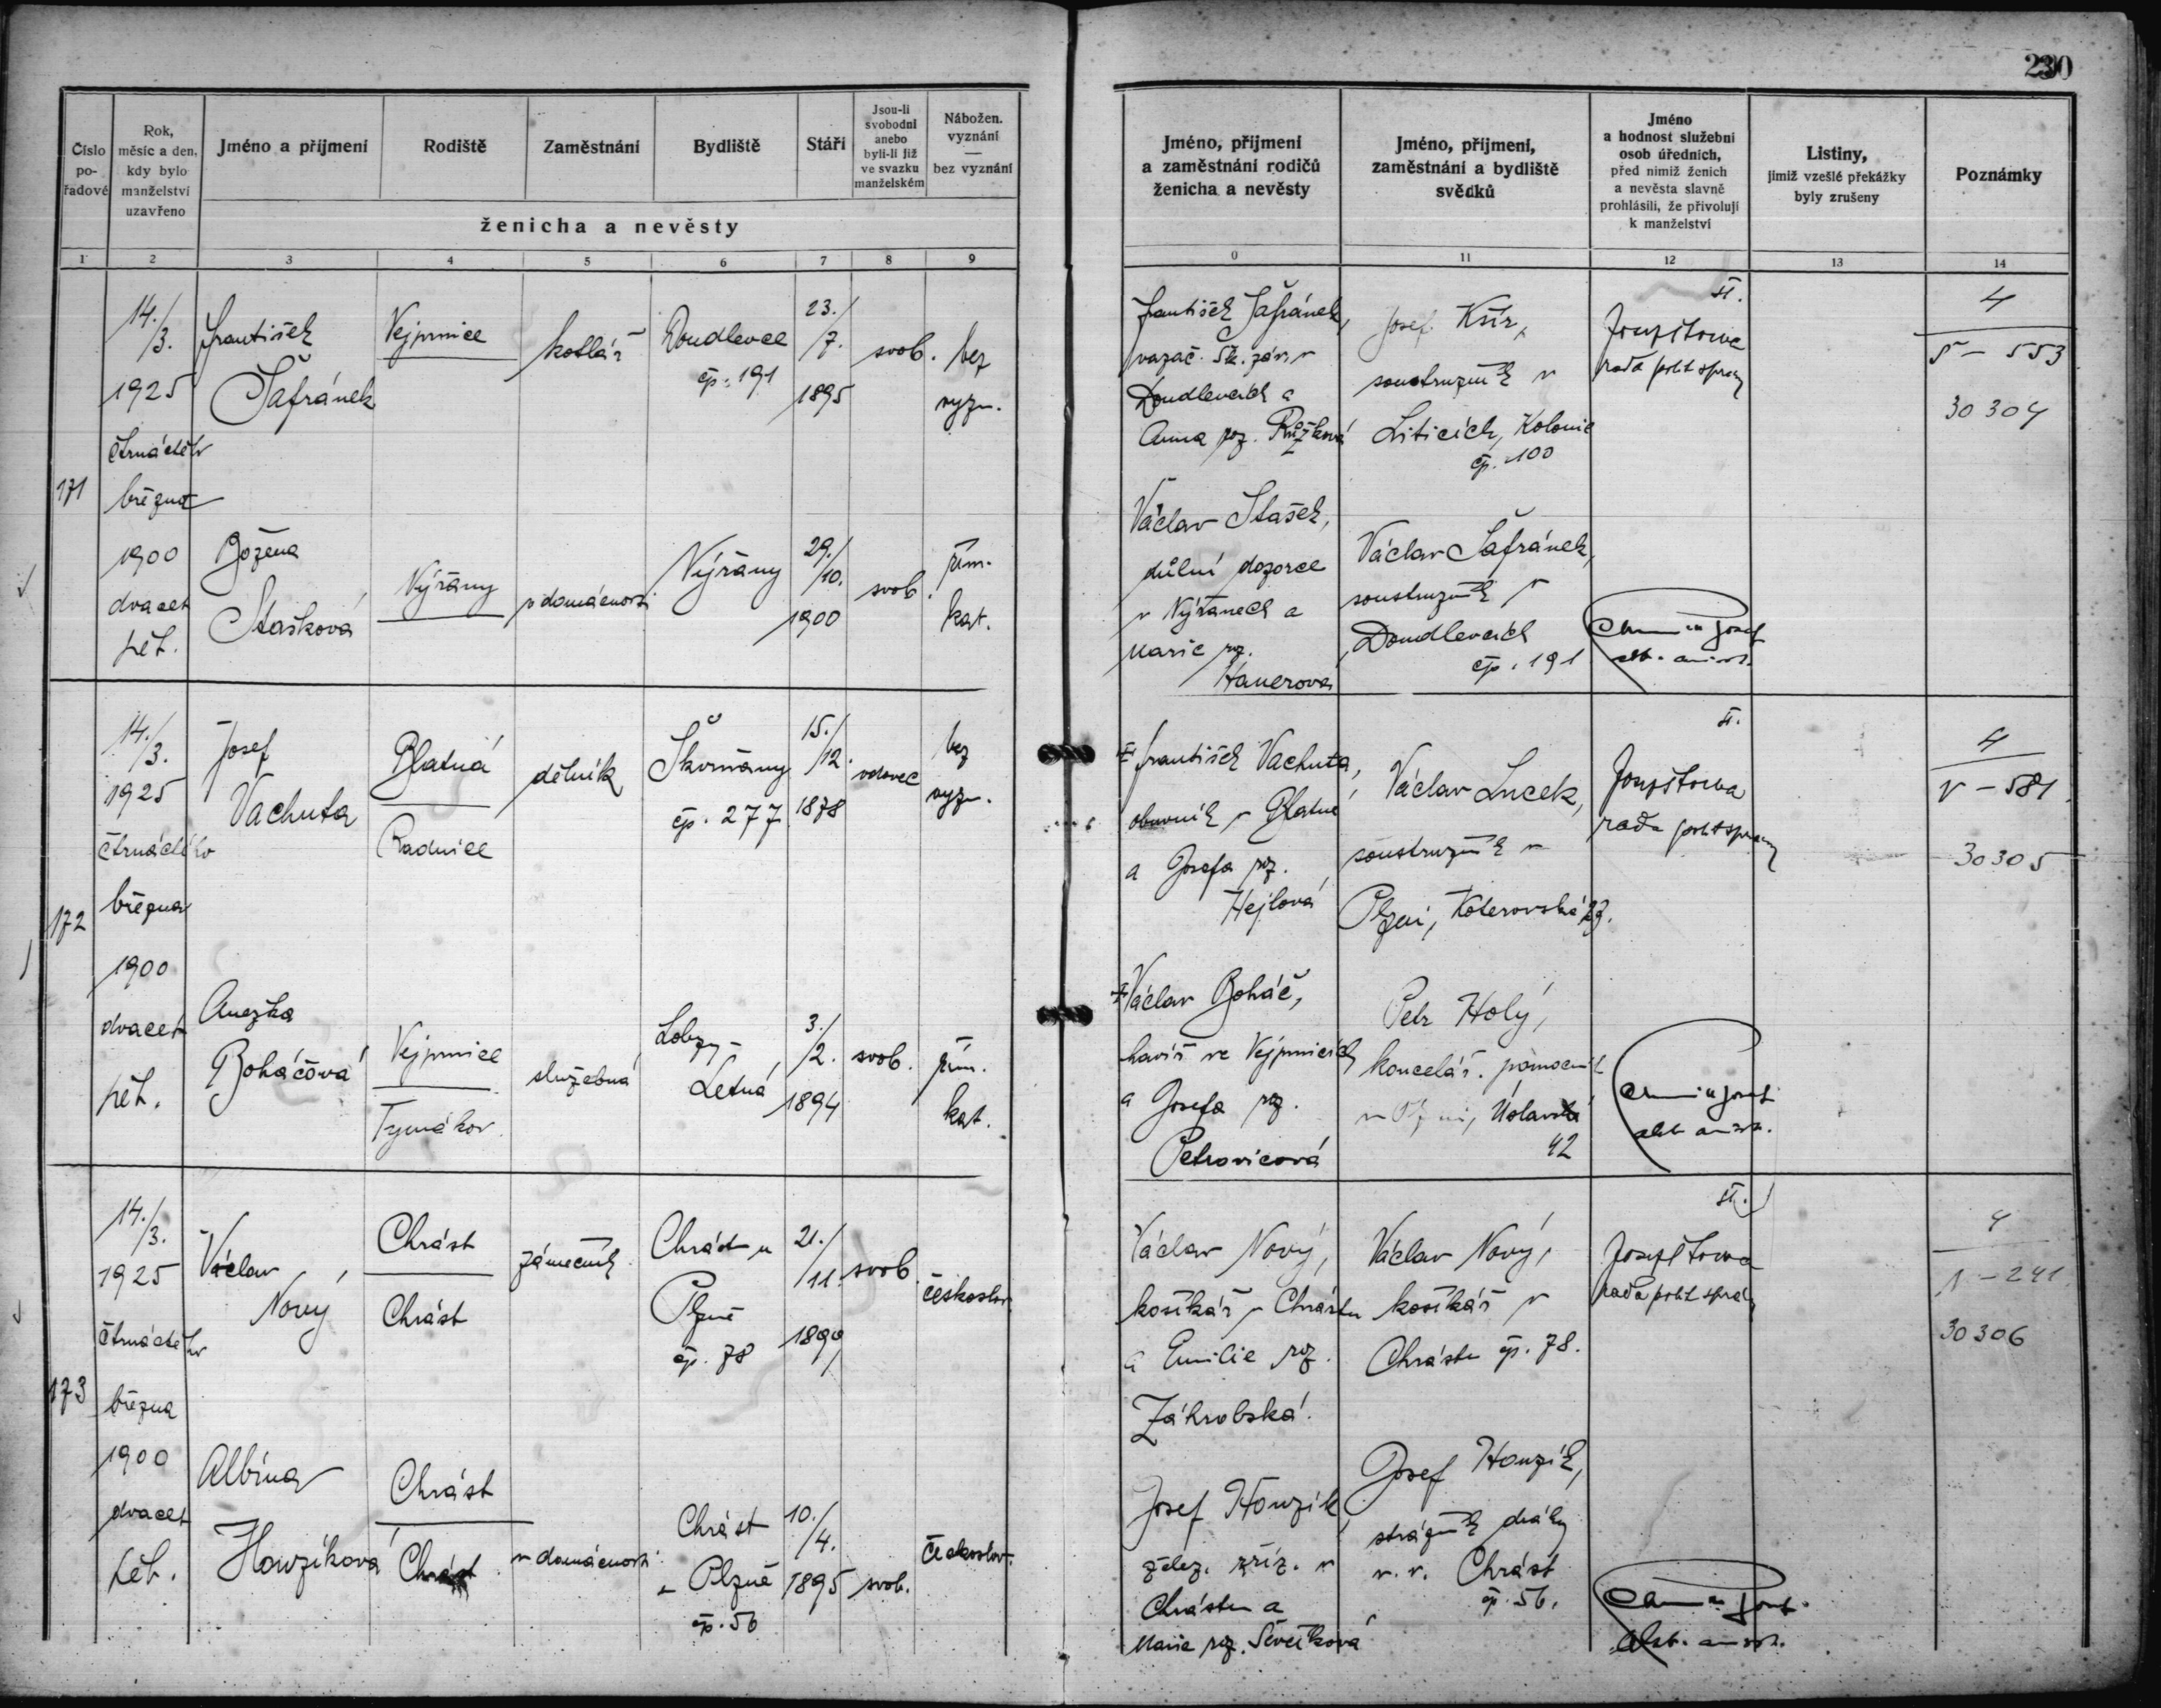 230
Číslo
po-
řadové
Rok,
měsíc a den,
kdy bylo
manželství
uzavřeno
Jméno a příjmení
Rodiště
Zaměstnání
Bydliště
Stáří
Jsou-li
svobodni
anebo
byli-li již
ve svazku
manželském
Nábožen.
vyznání
—
bez vyznání
ženicha a nevěsty
Jméno, příjmení
a zaměstnání rodičů
ženicha a nevěsty
Jméno, příjmení,
zaměstnání a bydliště
svědků
Jméno
a hodnost služební
osob úředních,
před nimiž ženich
a nevěsta slavně
prohlásili, že přivolují
k manželství
Listiny,
jimiž vzešlé překážky
byly zrušeny
Poznámky
1 2 3 4 5 6 7 8 9
0 11 12 13 14
171
14./3.
1925
čtrnáctého
března
1900
dvacet
pět.
František
Šafránek
Vejprnice
kotlář
Doudlevce
čp. 191
23./7.
1895
svob.
bez
vyzn.
František Šafránek,
vazač Šk. záv. v
Doudlevcích a
Anna roz. Růžková
Josef
soustružník v
Liticích, Kolonie
čp. 100
rada polit. správy
4
553
30304
Božena
Stašková
Nýřany
v domácnosti
Nýřany
29./10.
1900
svob.
řím.
kat.
Václav Stašek,
důlní dozorce
v Nýřanech a
Marie roz.
Hanerová
Václav Šafránek,
soustružník v
Doudlevcích
čp. 191
172
14./3.
1925
čtrnáctého
března
1900
dvacet
pět.
Josef
Vachuta
Blatná
Radnice
dělník
Škvrňany
čp. 277
15./12.
1878
vdovec
bez
vyzn.
† František Vachuta,
obuvník v Blatné
a Josefa roz.
Hejlová
Václav Lucek,
soustružník v
Plzni, Koterovská
rada polit. správy
4
V – 581
30305
Anežka
Boháčová
Vejprnice
Tymákov
služebná
Lobzy –
Letná
3./2.
1894
svob.
řím.
kat.
† Václav Boháč,
havíř ve Vejprnicích
a Josefa roz.
Petrovicová
Petr Holý,
kancelář. pomocník
v Plzni, Úslavská
42
173
14./3.
1925
čtrnáctého
března
1900
dvacet
pět.
Václav
Nový
Chrást
Chrást
zámečník
Chrást u
Plzně
čp. 78
21./11.
1899
svob.
českoslov.
Václav Nový,
košíkář v Chrástu
a Emilie roz.
Záhrobská.
Václav Nový,
košíkář v
Chrástu čp. 78.
rada polit. správy
4
241
30306
Albína
Honzíková
Chrást
Chrást
v domácnosti
Chrást
u Plzně
čp. 56
10./4.
1895
svob.
českoslov.
Josef Honzík
želez. zříz. v
Chrástu a
Marie roz. Ševčíková
Josef Honzík,
strážník dráhy
v. v. Chrást
čp. 56.